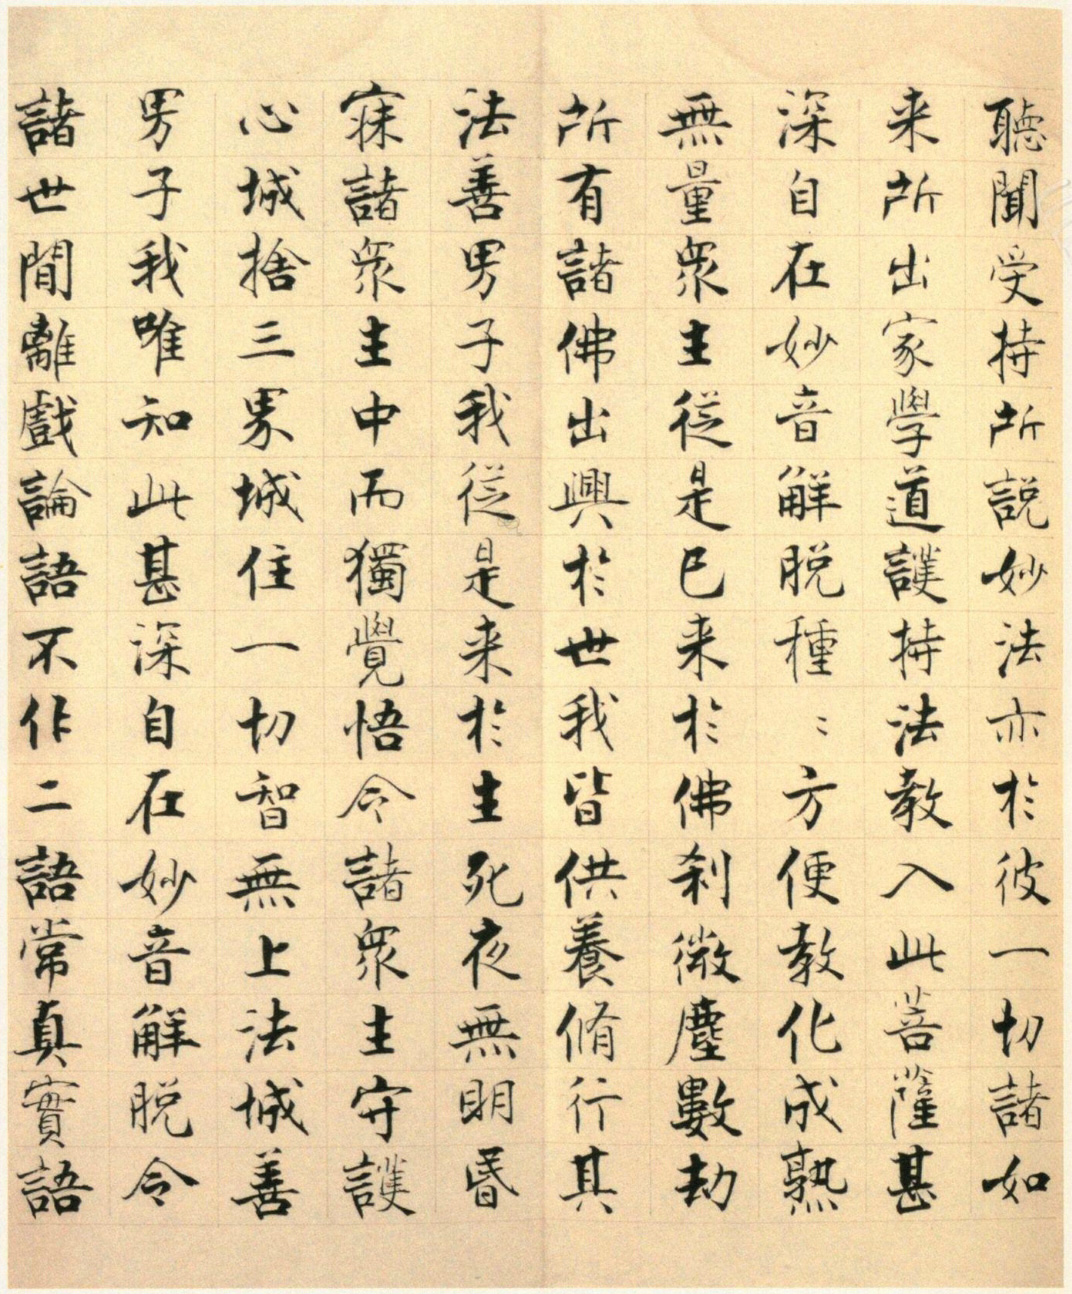 聽聞受持所說妙法亦於彼一切諸如
来所出家學道護持法教入此菩薩甚
深自在妙音解脫種〻方便教化成熟
無量衆生從是已来於佛剎微塵數劫
所有諸佛出興於世我皆供養脩行其
法善男子我從是来於生死夜無明昏
寐諸衆生中而獨覺悟令諸衆生守護
心城捨三界城住一切智無上法城善
男子我唯知此甚深自在妙音解脫令
諸世間離戲論語不作二語常真實語